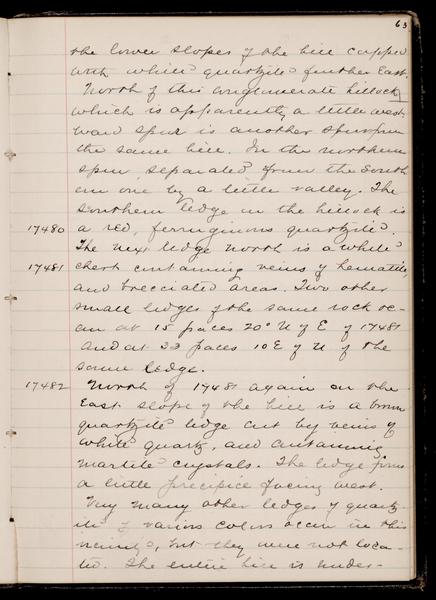 63
the lower slopes of the hill capped
with white quartzite further East.
North of this conglomerate hillock
which is apparently a little west-
ward spur is another spur from
the same hill. In the northern
spur separated from the South
ern one by a little valley. The
southern ledge on the hillock is
17480 a red, ferruginous quartzite.
The next ledge North is a white
17481 chert containing veins of hematite
and brecciated areas. Two other
small ledges of the same rock oc-
cur at 15 paces 20° N of E of 17481
and at 33 paces 10 E of N of the
same ledge.
17482 North of 17481 again on the
East slope of the hill is a brown
quartzite ledge cut by veins of
white quartz, and containing
martite crystals. The ledge forms
a little precipice facing west.
Very many other ledges of quartz-
ite of various colors occur in this
vicinity, but they were not loca-
ted. The entire hill is under-